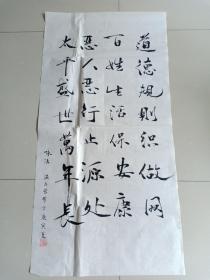 道德规则织做网
百姓生活保安康
恶人恶行止源处
太平盛世万年长
咏法